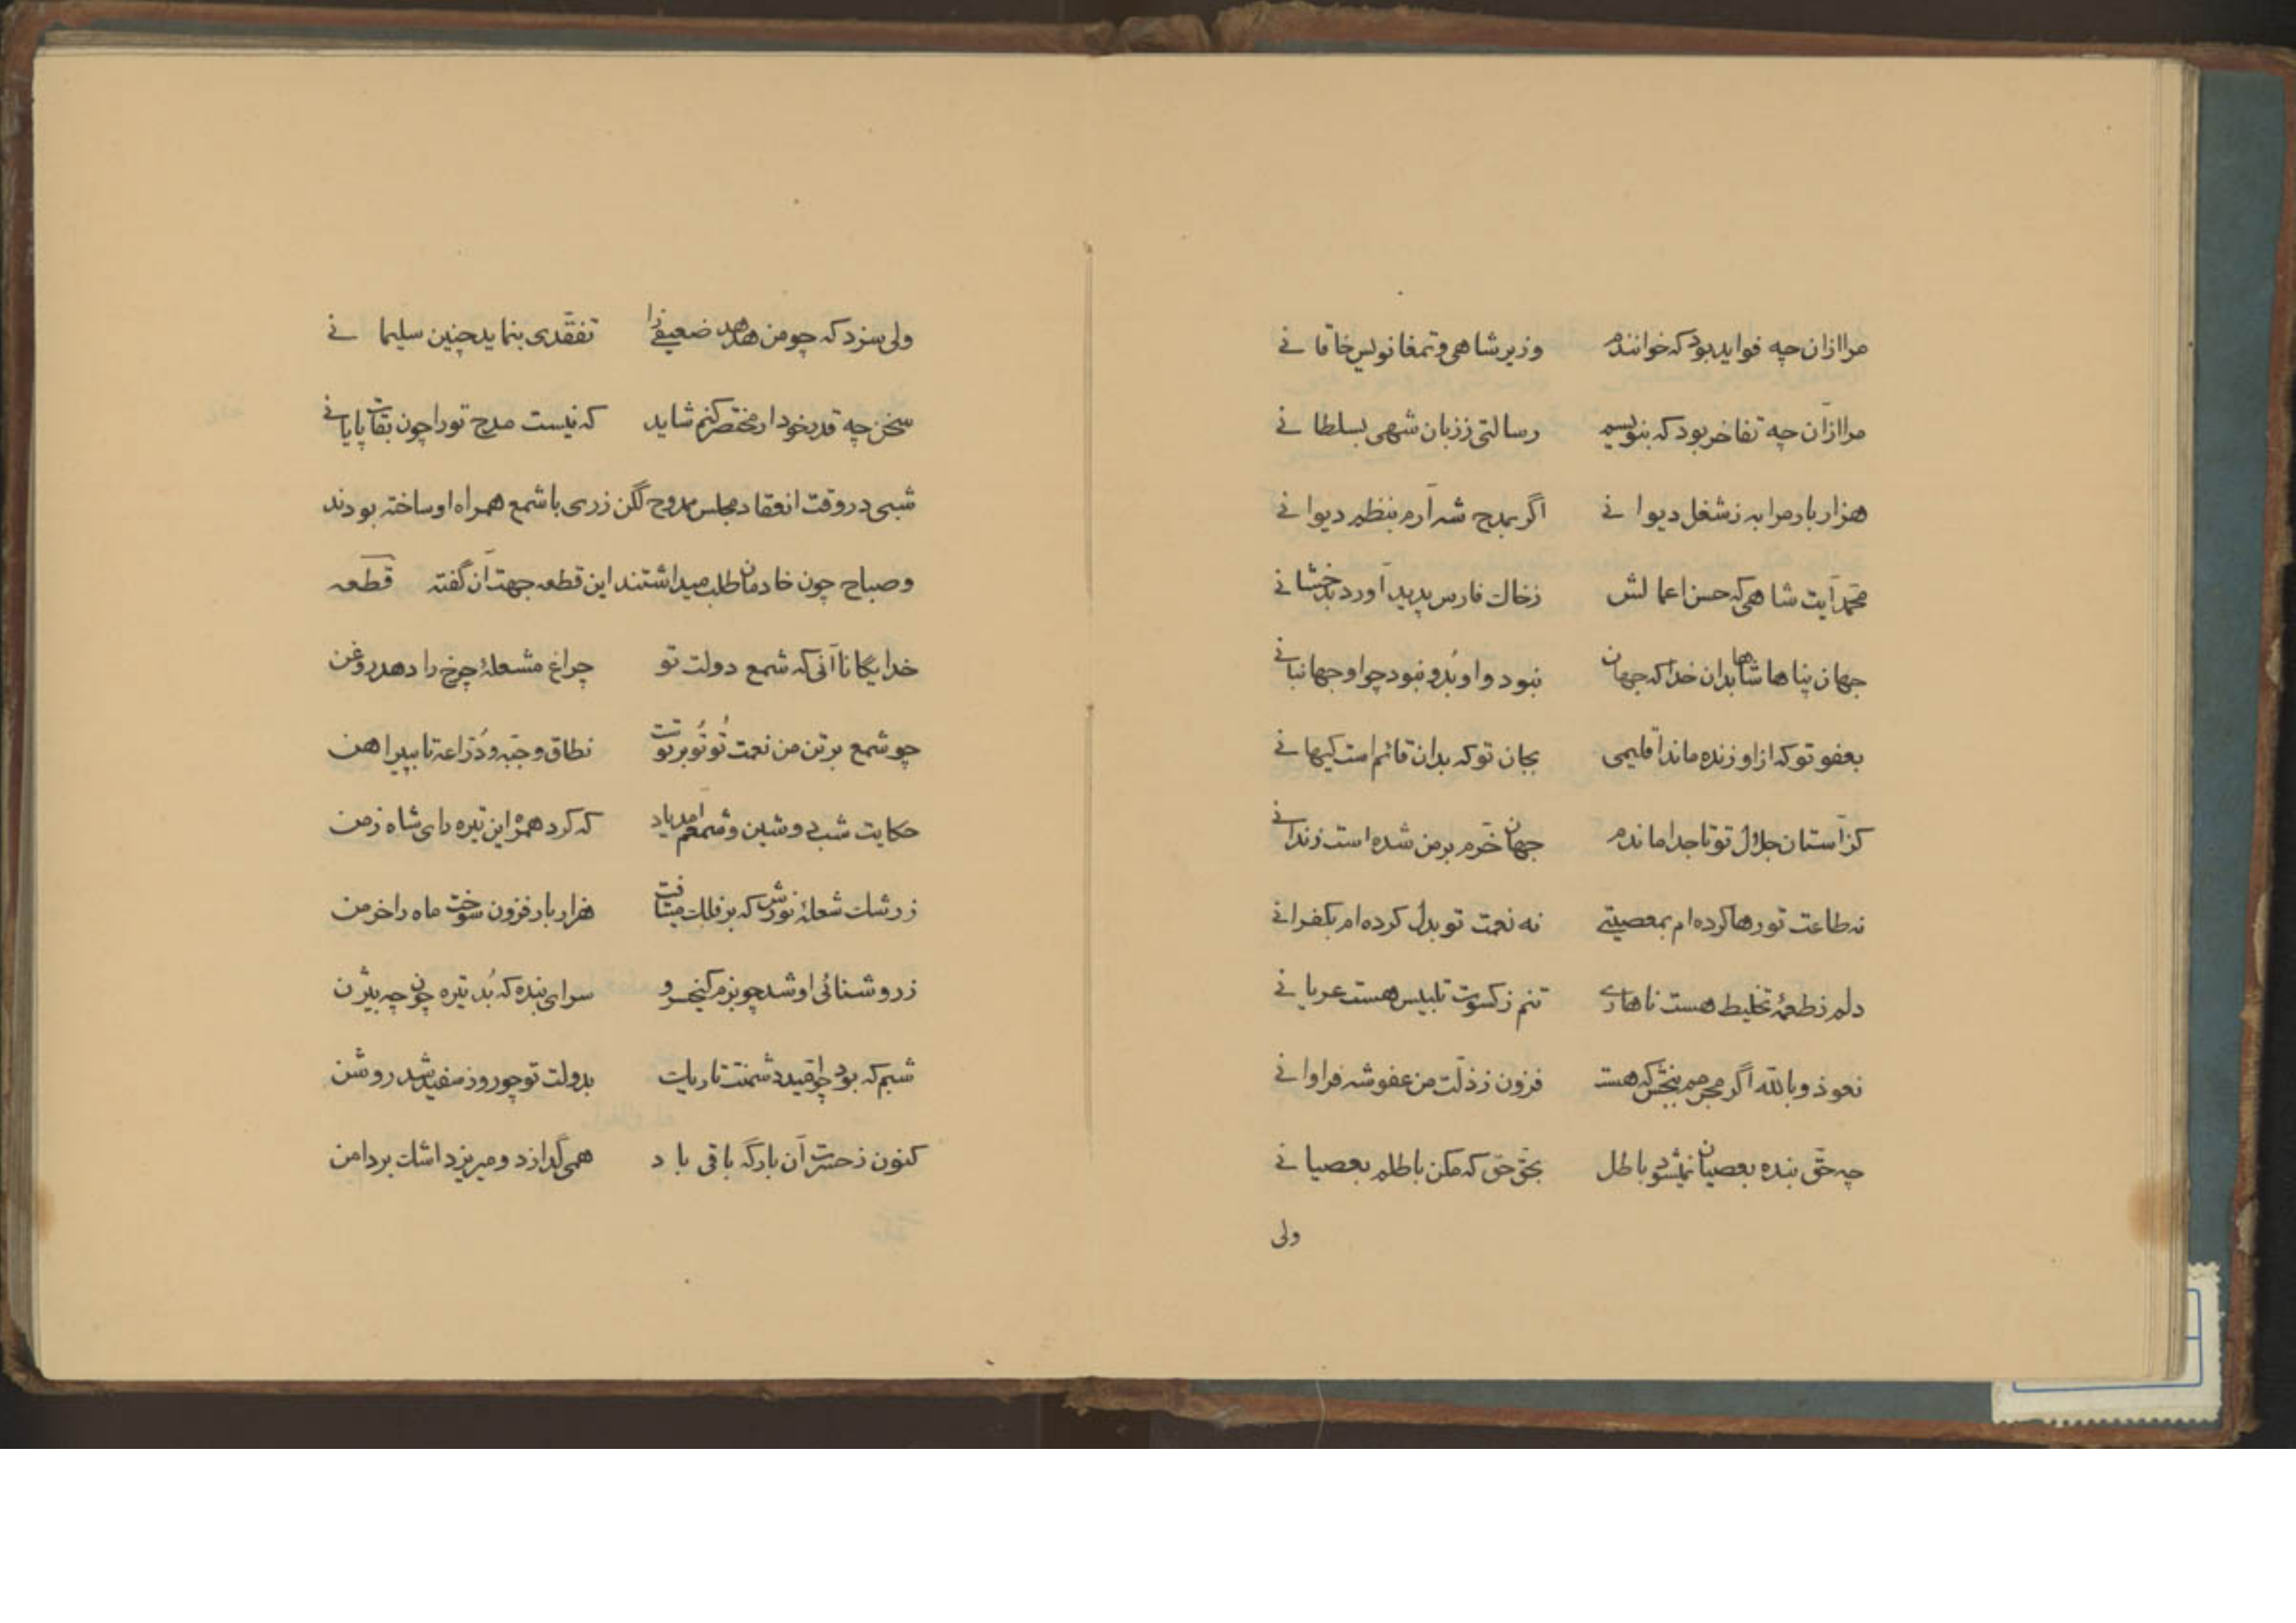 مرا ازان چه فواید بود که خوانندم وزیر شاهی و تمغانویس خاقانی
مرا ازآن چه تفاخر بود که بنویسم رسالتی ززبان شهی بسلطانی
هزار بار مرا به ز شغل دیوانی اگر بمدح شه آرم بنظم دیوانی
محمد آیت شاهی که حسن اعمالش زخاك فارس پدید آورد بدخشانی
جهان پناها شاها بدان خدا که جهان نبود و او بُد و نبود چو او جهانبانی
بعفو تو که ازاو زنده ماند اقلیمی بجان تو که بدان قائم است کیهانی
کز آستان جلال تو تا جدا ماندم جهان خرّم بر من شده است زندانی
نه طاعت تو رها کرده ام بمعصیتی نه نعمت تو بدل کرده ام بکفرانی
دلم ز طعمهٔ تخلیط هست ناهاری تنم ز کسوت تلبیس هست عریانی
نعوذ و بالله اگر مجرمم ببخش که هست فزون ز ذلّت من عفو شه فراوانی
چه حقّ بنده بعصیان نمیشود باطل بحقّ حق که مکن باطلم بعصیانی
ولی
ولی سزد که چو من هدهد ضعیفی را تفقّدی بنماید چنین سلیمانی
سخن چه قدر خود ار مختصر کنم شاید که نیست مدح تورا چون بقات پایانی
شبی در وقت انعقاد مجلس ممدوح لگن زری با شمع همراه او ساخته بودند
و صباح چون خادمان طلب میداشتند این قطعه جهت آن گفته قطعه
خدایگانا آنی که شمع دولت تو چراغ مشعلهٔ چرخ را دهد روغن
چو شمع بر تن من نعمت تُو تُو بر توست نطاق و جبّه و دُرّاعه تا بپیراهن
حکایت شب دوشین و شمعم آمد یاد که کرد همره این تیره رای شاه زمن
ز رشك شعلهٔ نورش که بر فلك میتافت هزار بار فزون سوخت ماه را خرمن
ز روشنائی او شد چو بزم کیخسرو سرای بنده که بُد تیره چون چه بیژن
شبم که بود چو امّید دشمنت تاریك بدولت تو چو روز سفید شد روشن
کنون ز حسرت آن بارگه باقی باد همی گدازد و میریزد اشك بر دامن